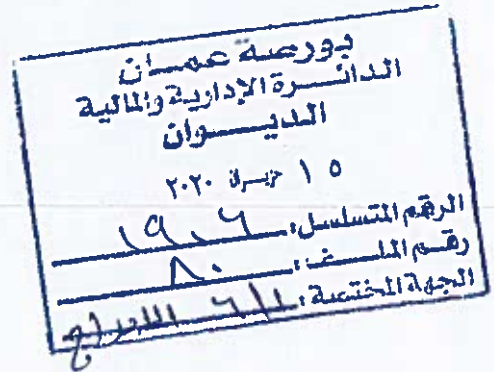 بورصة عمان
الدائرة الإدارية والمالية
الديوان
١٥ حزيران ٢٠٢٠
الرقم المتسلسل: ١٩٠٦
رقم الملف: ٨٠
الجهة المختصة: